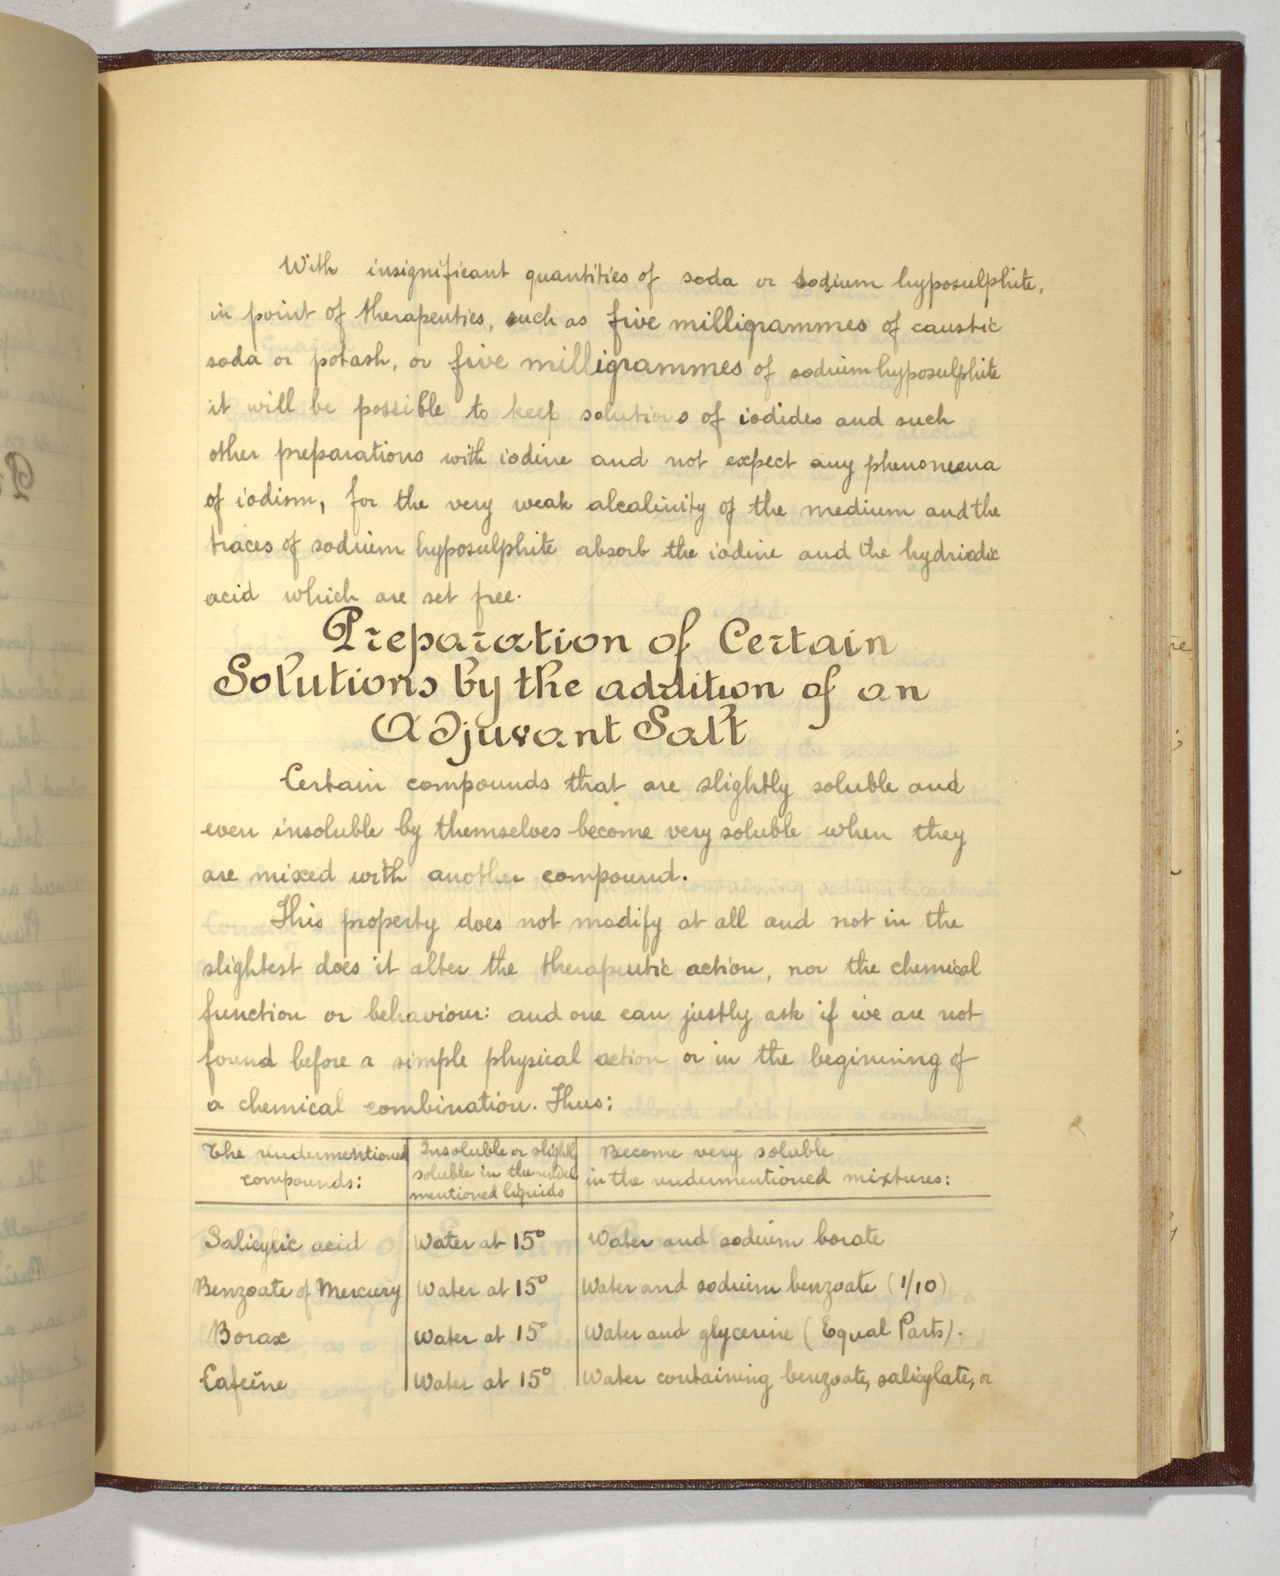 With insignificant quantities of soda or sodium hyposulphite,
in point of therapeutics, such as five milligrammes of caustic
soda or potash, or five milligrammes of sodium hyposulphite
it will be possible to keep solutions of iodides and such
other preparations with iodine and not expect any phenomena
of iodism, for the very weak alcalinity of the medium and the
traces of sodium hyposulphite absorb the iodine and the hydriodic
acid which are set free.
Preparation of Certain
Solutions by the addition of an
Adjuvant Salt
Certain compounds that are slightly soluble and
even insoluble by themselves become very soluble when they
are mixed with another compound.
This property does not modify at all and not in the
slightest does it alter the therapeutic action, nor the chemical
function or behaviour: and one can justly ask if we are not
found before a simple physical action or in the beginning of
a chemical combination. Thus:
The undermentioned compounds:
Insoluble or slightly soluble in the under mentioned liquids
Become very soluble in the undermentioned mixtures:
Salicylic acid Water at 15° Water and sodium borate
Benzoate of Mercury Water at 15° Water and sodium benzoate (1/10)
Borax Water at 15° Water and glycerine (Equal Parts).
Cafeïne Water at 15° Water containing benzoate, salicylate, or